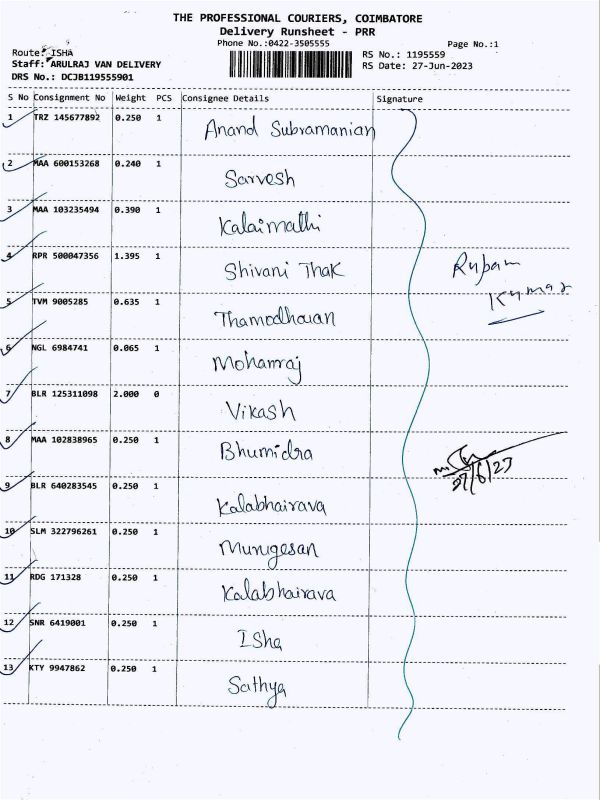 THE PROFESSIONAL COURIERS, COIMBATORE
Delivery Runsheet - PRR
Phone No.:0422-3505555
Page No.:1
Route: ISHA
RS No.: 1195559
Staff: ARULRAJ VAN DELIVERY
RS Date: 27-Jun-2023
DRS No.: DCJB119555901
S No Consignment No Weight PCS Consignee Details Signature
1 TRZ 145677892 0.250 1 Anand Subramanian
2 MAA 600153268 0.240 1 Sarvesh
3 MAA 103235494 0.390 1 Kalaimathi
4 RPR 500047356 1.395 1 Shivani Thak
Rupam
Kumar
5 TVM 9005285 0.635 1 Thamodhauan
6 NGL 6984741 0.065 1 Mohanraj
7 BLR 125311098 2.000 0 Vikash
8 MAA 102838965 0.250 1 Bhumidra
27/6/23
9 BLR 640283545 0.250 1 Kalabhairava
10 SLM 322796261 0.250 1 Murugesan
11 RDG 171328 0.250 1 Kalabhairava
12 SNR 6419001 0.250 1 Isha
13 KTY 9947862 0.250 1 Sathya